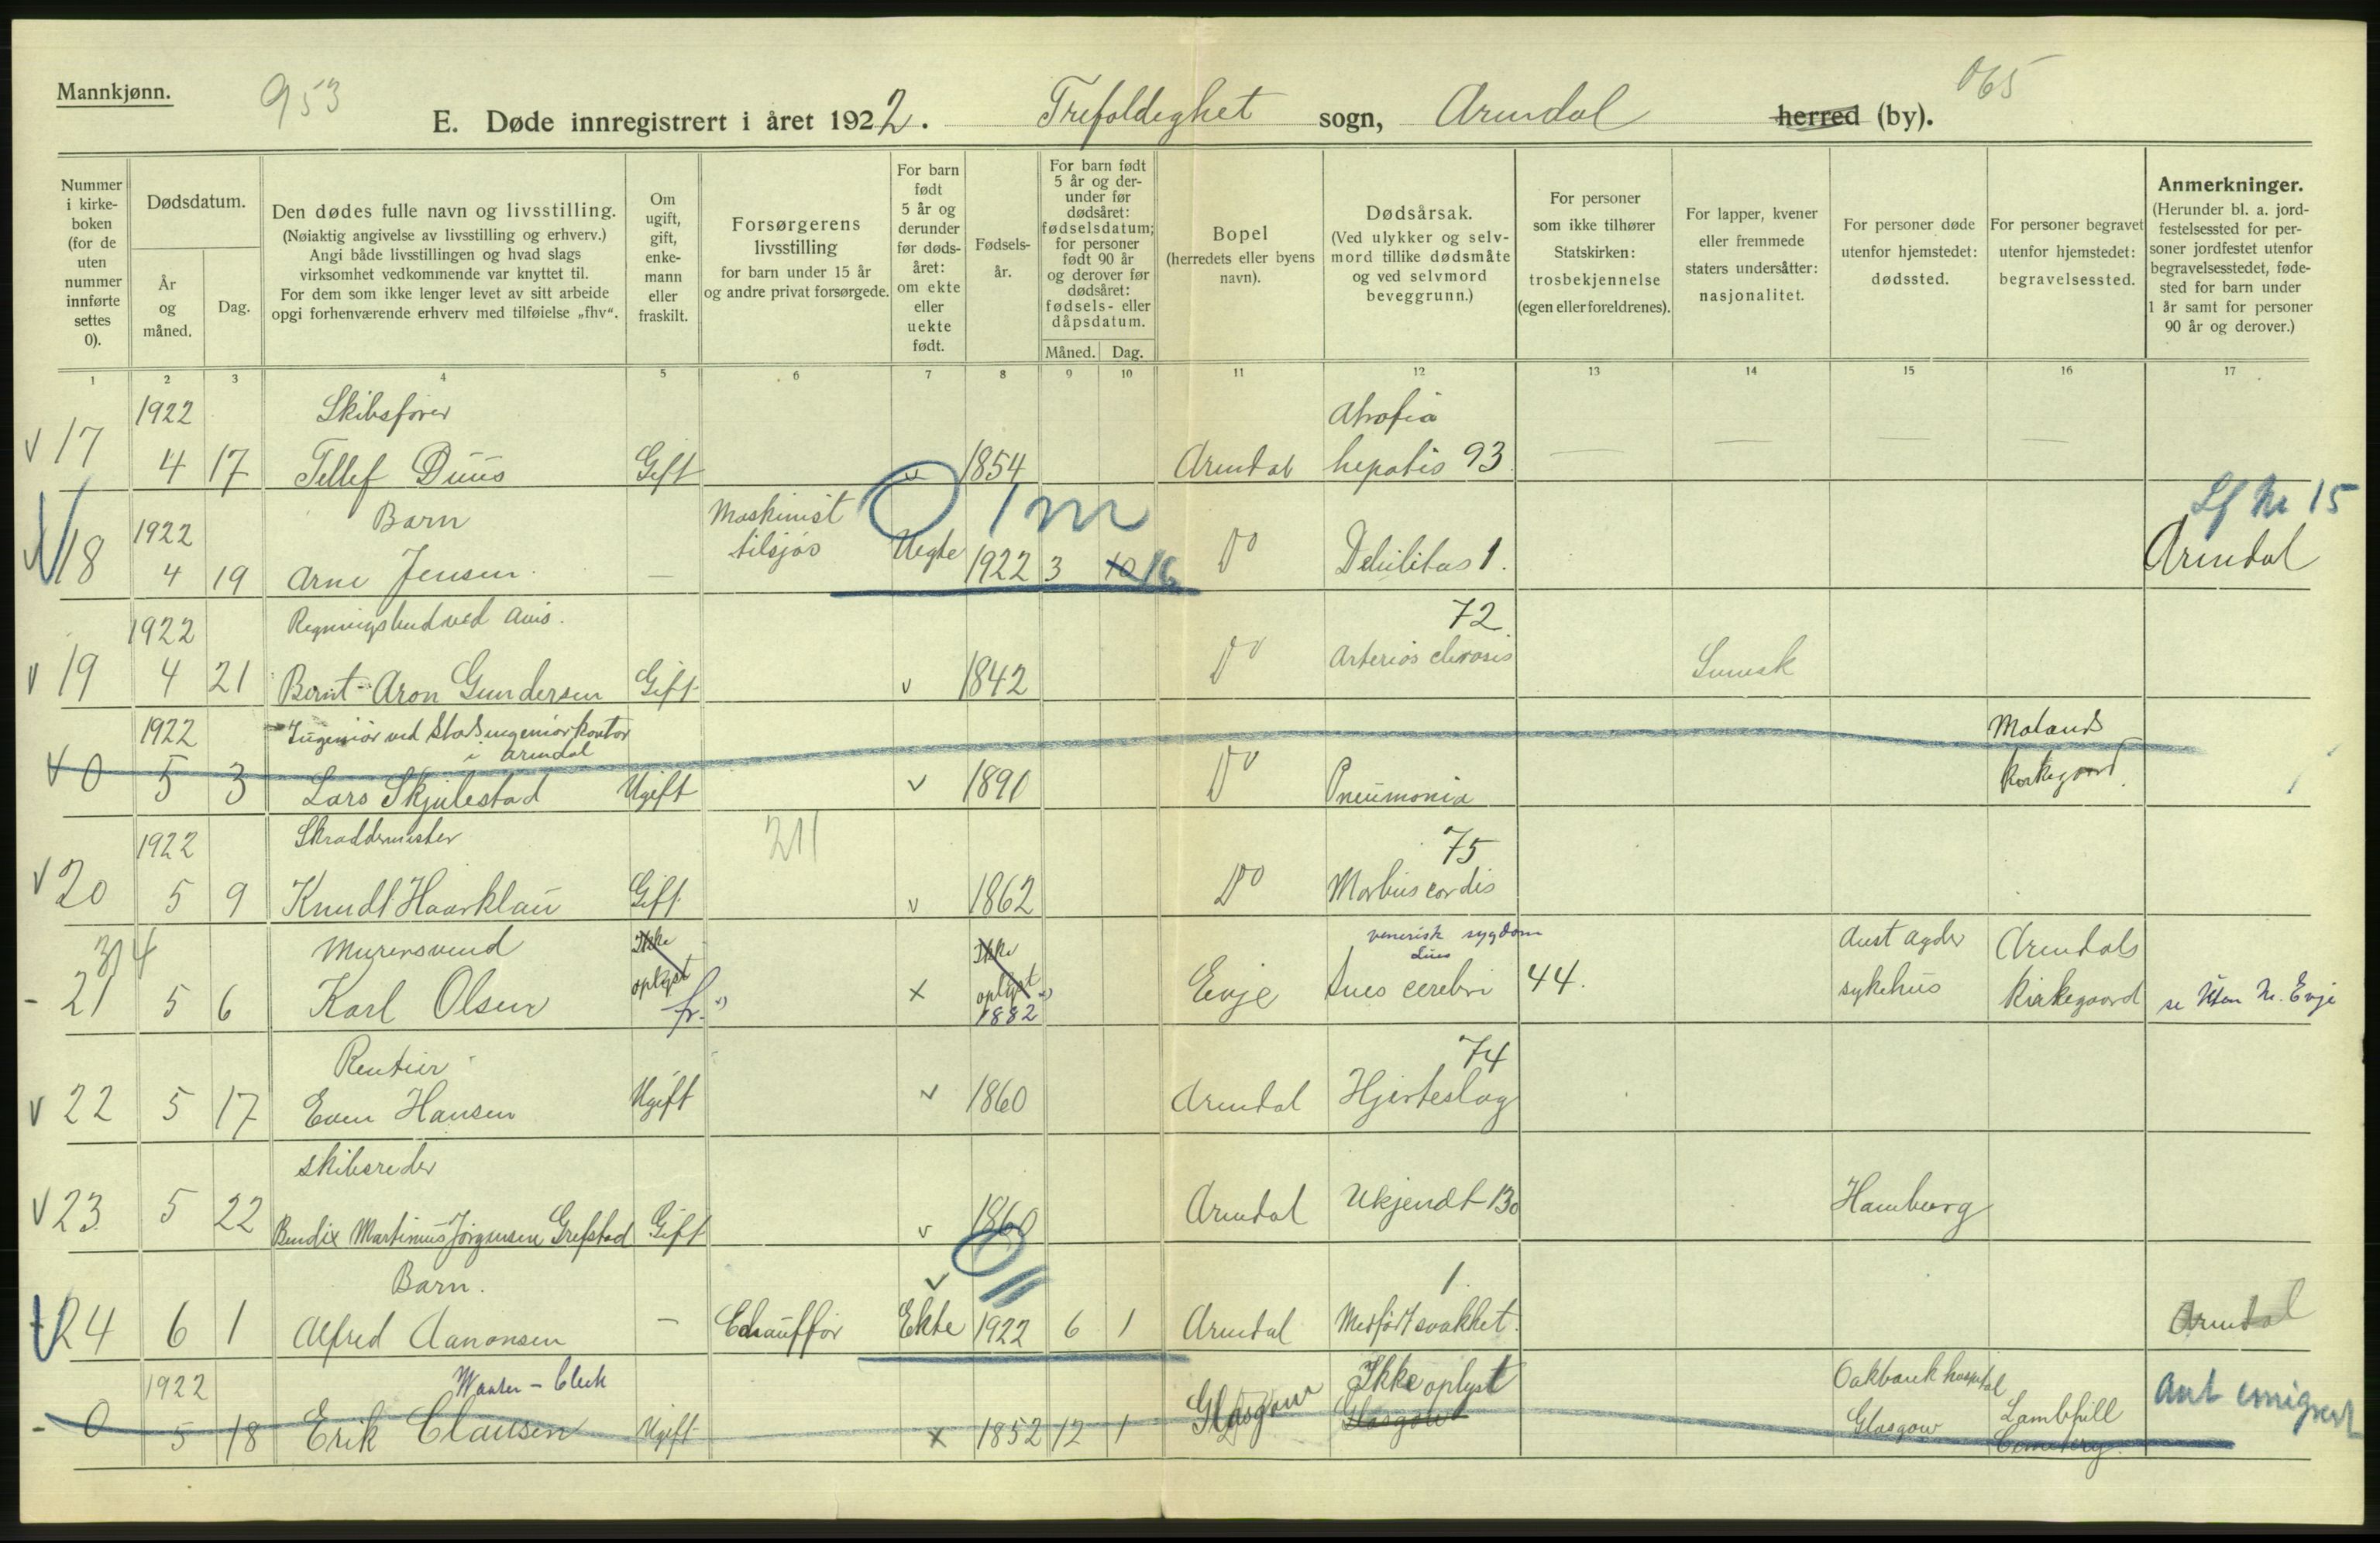 Mannkjønn.
953
065
E. Døde innregistrert i året 1922. Trefoldighet sogn, Arendal herred (by).
Nummer i kirke-boken (for de uten nummer innførte settes 0).
Dødsdatum.
År og måned.
Dag.
Den dødes fulle navn og livsstilling.
(Nøiaktig angivelse av livsstilling og erhverv.)
Angi både livsstillingen og hvad slags
virksomhet vedkommende var knyttet til.
For dem som ikke lenger levet av sitt arbeide
opgi forhenværende erhverv med tilføielse „fhv“.
Om ugift, gift, enke-mann eller fraskilt.
Forsørgerens livsstilling
for barn under 15 år
og andre privat forsørgede.
For barn født 5 år og derunder før døds-året: om ekte eller uekte født.
Fødsels-år.
For barn født 5 år og der-under før dødsåret: fødselsdatum; for personer født 90 år og derover før dødsåret: fødsels- eller dåpsdatum.
Måned.
Dag.
Bopel
(herredets eller byens navn).
Dødsårsak.
(Ved ulykker og selv-mord tillike dødsmåte og ved selvmord beveggrunn.)
For personer som ikke tilhører Statskirken: trosbekjennelse (egen eller foreldrenes).
For lapper, kvener eller fremmede staters undersåtter: nasjonalitet.
For personer døde utenfor hjemstedet: dødssted.
For personer begravet utenfor hjemstedet: begravelsessted.
Anmerkninger.
(Herunder bl. a. jord-festelsessted for per-soner jordfestet utenfor begravelsesstedet, føde-sted for barn under 1 år samt for personer 90 år og derover.)
1 2 3 4 5 6 7 8 9 10 11 12 13 14 15 16 17
1922 Skibsfører Atrofia
v 17 4 17 Tellef Duus Gift v 1854 Arendal hepatis 93. — — — —
1922 Barn Maskinist O 1 m Lf Nr 15
18 4 19 Arne Jensen. — tilsjøs Uegte 1922 3 10 16 Do Debilitas 1. Arendal
1922 Regningsbud ved avis. 72
v 19 4 21 Bernt Aron Gundersen Gift v 1842 Do Arteriosclerosis Svensk
1922 Ingeniør ved Stadsingeniørkontor i Arendal Molands
v 0 5 3 Lars Skjulestad Ugift v 1891 Do Pneumonia kirkegaard.
1922 Skraddermester 211 75
v 20 5 9 Knudt Haarklau Gift v 1862 Do Morbus cordis
314 Murersvend Ikke Ikke venerisk sygdom Lues Aust Agder Arendals
- 21 5 6 Karl Olsen oplyst fr. x oplyst 1882 Evje Lues cerebri 44. sykehus Kirkegaard se Uten Nr. Evje
Rentier 74
v 22 5 17 Even Hansen Ugift v 1860 Arendal Hjerteslag
Skibsreder
v 23 5 22 Bendix Martinius Jørgensen Grefstad Gift v 1860 Arendal Ukjendt 130 Hamburg
Barn. v 1.
24 6 1 Alfred Aanonsen — Chauffør Ekte 1922 6 1 Arendal Medfødt svakhet. Arendal
1922 Ikke oplyst Oakbank hospital Ant emigrert
- 0 5 18 Erik Clausen Ugift x 1852 12 1 Glasgow Glasgow Glasgow Lambhill Cemetery.